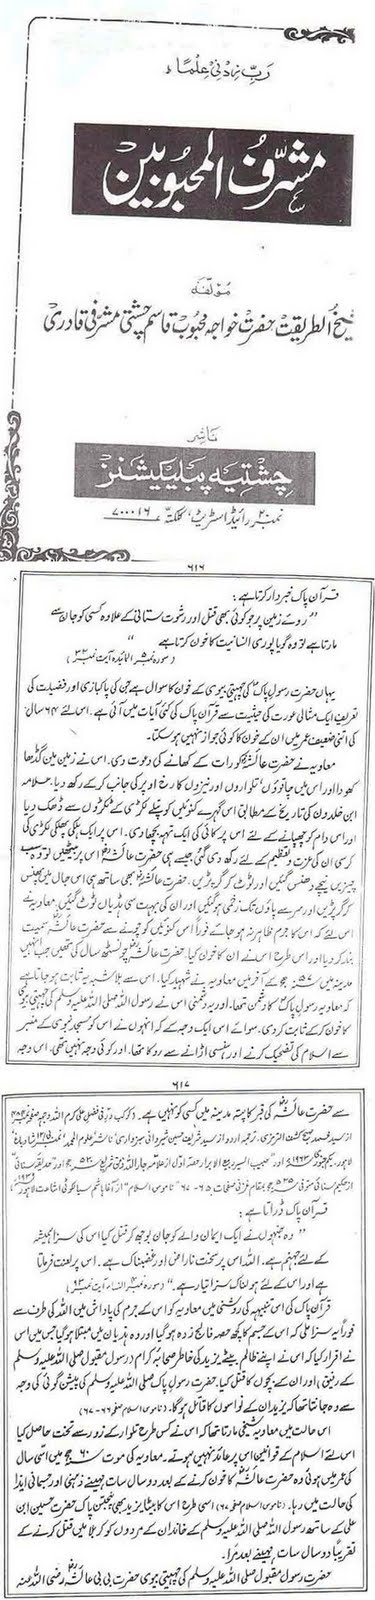 رَبِّ زِدْنِیْ عِلْمًا ط
مشرّفُ المحبُوبین
مؤلفہ
شیخ الطریقت حضرت خواجہ محبوب قاسم چشتی مشرفی قادری
ناشر
چشتیہ پبلیکیشنز
نمبر ۲ رائیڈ اسٹریٹ، کلکتہ ۷۰۰۰۱۶
۶۱۶
قرآن پاک خبردار کرتا ہے :
"روئے زمین پر جو کوئی بھی قتل اور رشوت ستانی کے علاوہ کسی کو جان سے
مارتا ہے تو وہ گویا پوری انسانیت کا خون کرتا ہے"
(سورہ نمبر ۵ المائیدہ آیت نمبر ۳۲)
یہاں حضرت رسول پاک کی چہیتی بیوی کے خون کا سوال ہے جن کی پاکبازی اور فضیلت کی
تعریف ایک مثالی عورت کی حیثیت سے قرآن پاک کی کئی آیات میں آئی ہے۔ اس لئے ۶۴ سال
کی اتنی ضعیف عمر میں ان کے خون کا کوئی جواز نہیں ہو سکتا۔
معاویہ نے حضرت عائشہ کو رات کے کھانے کی دعوت دی۔ اس نے زمین میں گڈھا
کھودا اور اس میں چاقوؤں، تلواروں اور نیزوں کا رخ اوپر کی جانب کر کے رکھ دیا۔ علامہ
ابن خلدون کی تاریخ کے مطابق اس گہرے کنوئیں کو پتلے لکڑی کے ٹکڑوں سے ڈھک دیا
اور اس دام کو چھپانے کے لئے اس پر کائی کی ایک تہہ بچھا دی۔ اس پر ایک ہلکی پھلکی لکڑی کی
کرسی ان کی عزت و تعظیم کے لئے رکھ دی گئی جیسے ہی حضرت عائشہ اس پر بیٹھیں تو وہ سب
چیزیں نیچے دھنس گئیں اور ٹوٹ کر گر پڑیں۔ حضرت عائشہ بھی ساتھ ہی اس جال میں پھنس
کر گر پڑیں اور سر سے پاؤں تک زخمی ہو گئیں اور ان کی بہت سی ہڈیاں ٹوٹ گئیں۔ معاویہ نے
اس لئے کہ اس کا جرم ظاہر نہ ہو جائے فوراً اس کنوئیں کو چونے سے حضرت عائشہ سمیت
بند کر دیا اور اس طرح اس نے ان کا خون کیا۔ حضرت عائشہ چونسٹھ سال کی تھیں جب انہیں
مدینہ میں ۵۷ھ حج کے آخر میں معاویہ نے شہید کیا۔ اس سے بلا شبہ یہ ثابت ہو جاتا ہے
کہ معاویہ رسول پاک کا دشمن تھا۔ اور یہ دشمنی اس نے رسول اللہ صلی اللہ علیہ وسلم کی چہیتی بیوی
کا خون کر کے ثابت کر دی۔ سوائے اس ایک وجہ کے کہ انہوں نے اس کو مسجد نبوی کے منبر
سے اسلام کی تضحیک کرنے اور ہنسی اڑانے سے روکا تھا۔ اور کوئی وجہ نہیں تھی۔ اس وجہ
۶۱۷
سے حضرت عائشہ کی قبر کا پتہ مدینہ میں کسی کو نہیں ہے۔ دکوکب دری فضی علی کرم اللہ وجہہ صفحہ
از سید محمد صبیح کشف الترمذی، ترجمہ اردو از سید شریف حسین شیروانی سبزواری
لاہور، یکم جنوری ۱۹۶۳ء اور "حبیب السیر ربیع الابرار" حصہ اول از علامہ جار اللہ
از حکیم سنائی متوفی ۵۳۵ھ بمقام غزنی صفحات ۶۵-۶۷ "ناموس اسلام" از آغا ہاشم سیالکوٹی اشاعت لاہور
قرآن پاک ڈراتا ہے :
"وہ جنہوں نے ایک ایمان والے کو جان بوجھ کر قتل کیا اس کی سزا ہمیشہ
کے لئے جہنم ہے۔ اللہ اس پر سخت ناراض اور غضبناک ہے۔ اس پر لعنت فرماتا
ہے اور اس کے لئے ہولناک سزا تیار ہے۔" (سورہ نمبر ۴ النساء آیت نمبر ۹۳)
قرآن پاک کی اس تنبیہہ کی روشنی میں معاویہ کو اس کے جرم کی پاداش میں اللہ کی طرف سے
فوراً یہ سزا ملی کہ اس کے جسم کا کچھ حصہ فالج زدہ ہو گیا اور وہ ہذیان میں مبتلا ہو گیا جس میں اس
نے اقرار کیا کہ اس نے اپنے ظالم بیٹے یزید کی خاطر صحابہ کرام (رسول مقبول صلی اللہ علیہ وسلم
کے رفیق) اور ان کے بچوں کا قتل کیا۔ حضرت رسول پاک صلی اللہ علیہ وسلم کی پیشن گوئی کی وجہ
سے وہ جانتا تھا کہ یزید ان کے نواسوں کا قاتل ہو گا۔ (ناموس اسلام صفحہ ۶۶-۶۷)
اس حالت میں معاویہ شیخی مارتا تھا کہ اس نے کس طرح تلوار کے زور سے تخت حاصل کیا
اس لئے اسلام کے قوانین اس پر عائد نہیں ہوتے۔ معاویہ کی موت ۶۰ھ حج میں اسّی سال
کی عمر میں ہوئی وہ حضرت عائشہ کا خون کرنے کے بعد دو سال سات مہینے ذہنی اور جسمانی ایذا
کی حالت میں رہا۔ (ناموس اسلام صفحہ ۶۷) اسی طرح اس کا بیٹا یزید بھی پنجتن پاک حضرت حسین ابن
علی کے ساتھ رسول اللہ صلی اللہ علیہ وسلم کے خاندان کے مردوں کو کربلا میں قتل کرنے کے
تقریباً دو سال سات مہینے بعد مرا۔
حضرت رسول مقبول صلی اللہ علیہ وسلم کی چہیتی بیوی حضرت بی بی عائشہ رضی اللہ عنہ